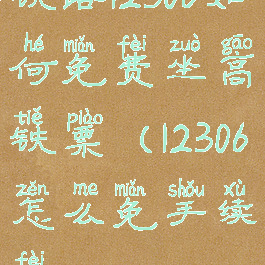 铁路12306如
hé miǎn fèi zuò gāo
何免费坐高
tiě piào
铁票（12306
zěn me miǎn shǒu xù
怎么免手续
fèi